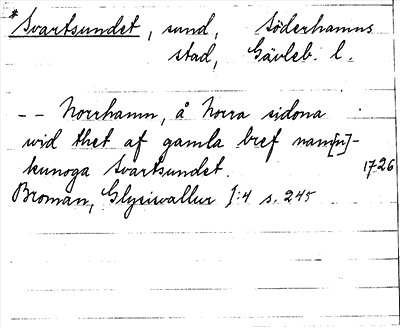 *Svartsundet, sund, Söderhamns
stad, Gävleb. l.
-- Norrhamn, å Norra sidona
wid thet af gamla bref nam[n]-
kunoga Svartsundet. 1726
Broman, Glysisvallur I:4 s. 245